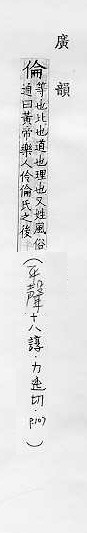 廣韻
倫
等也比也道也理也又姓風俗
通曰黃帝樂人伶倫氏之後
(平聲.十八諄.力迍切.P107)